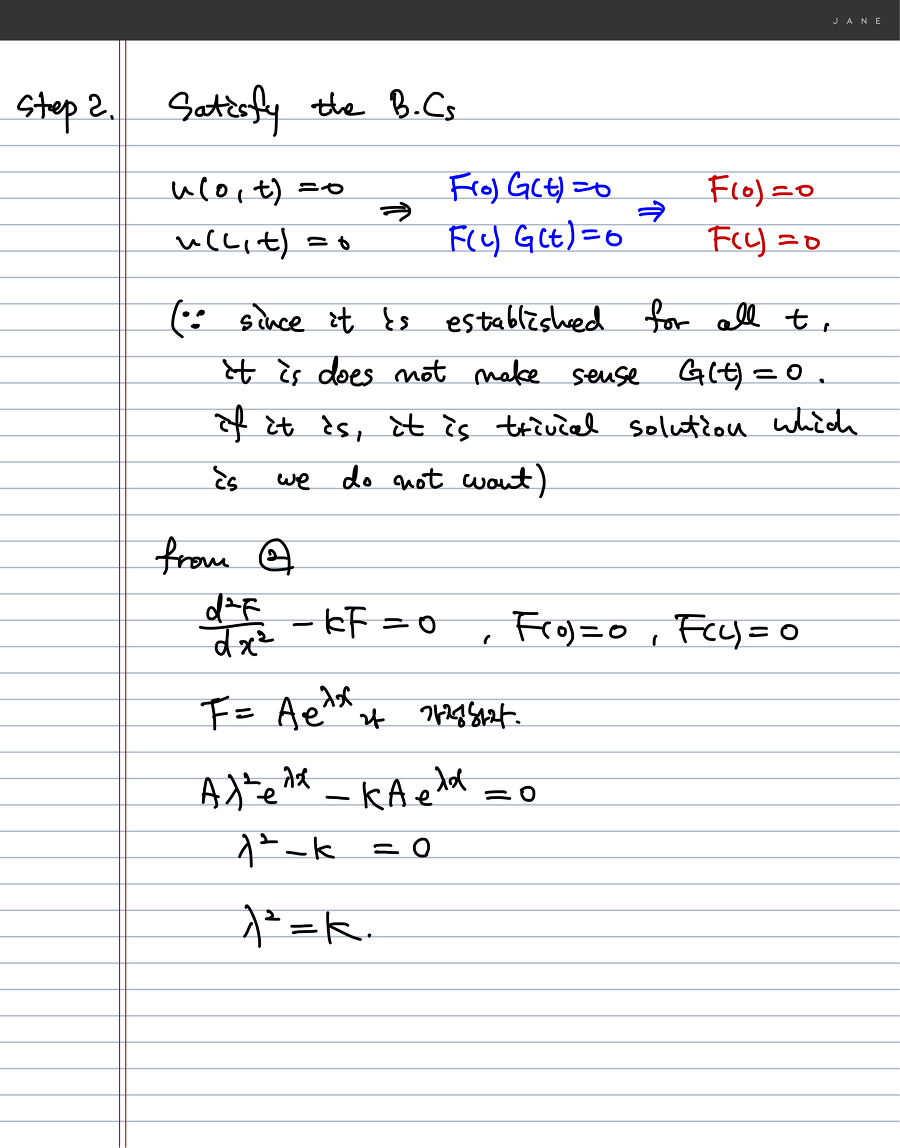 JANE
Step 2. Satisfy the B.Cs
u(0,t) =0 ⇒ F(0) G(t)=0 ⇒ F(0)=0
u(L,t) =0 F(L) G(t)=0 F(L)=0
(∵ since it is established for all t,
it is does not make sense G(t)=0.
if it is, it is trivial solution which
is we do not want)
from ②
d²F/dx² - kF = 0 , F(0)=0 , F(L)=0
F= Ae^λx 라 가정하자.
Aλ²e^λx - kAe^λx = 0
λ² - k = 0
λ² = k.